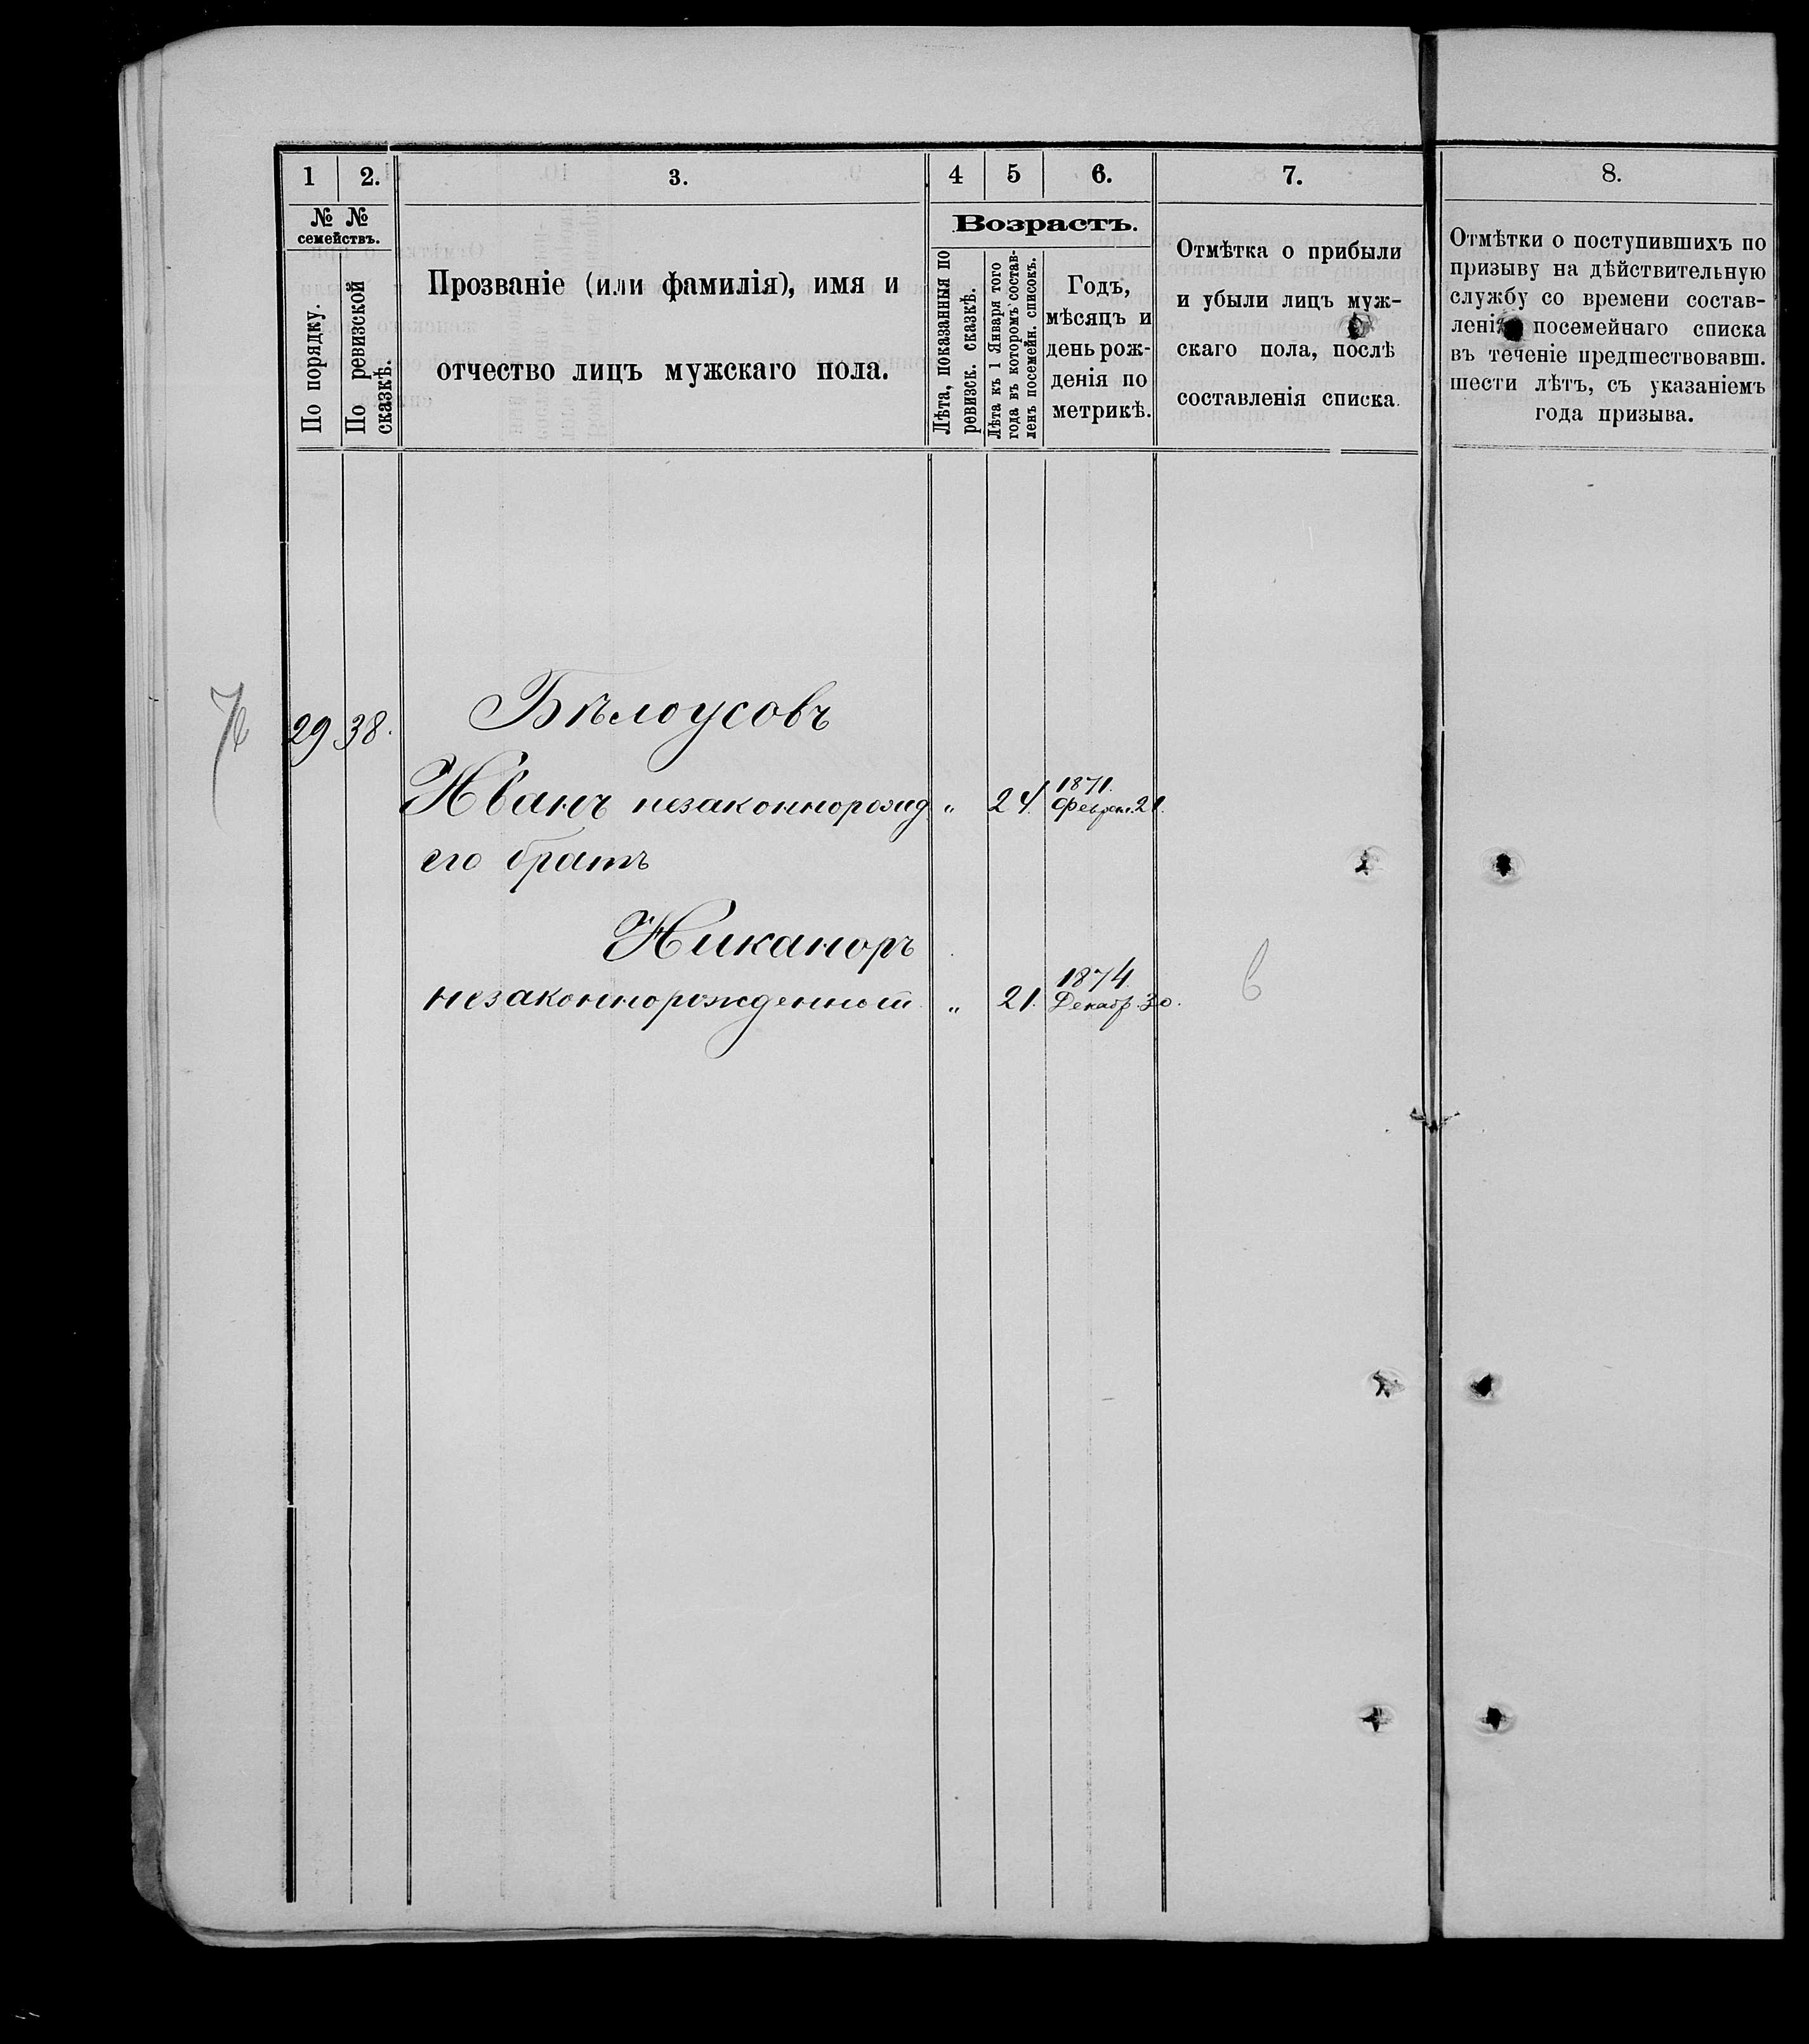 1
2.
3.
4
5
6.
7.
8.
№ №
семействъ.
По порядку.
По ревизской
сказкѣ.
Прозваніе (или фамилія), имя и
отчество лицъ мужскаго пола.
Возрастъ.
Лѣта, показанныя по
ревизск. сказкѣ.
Лѣта къ 1 Января того
года въ которомъ состав-
ленъ посемейн. списокъ.
Годъ,
мѣсяцъ и
день рож-
денія по
метрикѣ.
Отмѣтка о прибыли
и убыли лицъ муж-
скаго пола, послѣ
составленія списка.
Отмѣтки о поступившихъ по
призыву на дѣйствительную
службу со времени состав-
лені посемейнаго списка
въ теченіе предшествовавш.
шести лѣтъ, съ указаніемъ
года призыва.
29 38. Бѣлоусовъ
1871.
Иванъ незаконнорожд. „ 24. Феврал. 21.
его братъ
Никаноръ
1874.
незаконнорожденный „ 21. Декабр. 30.